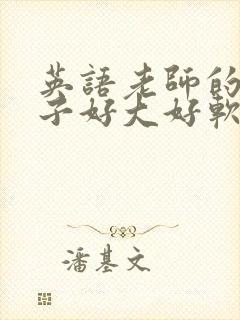 英語老師的
子好大好軟
潘基文